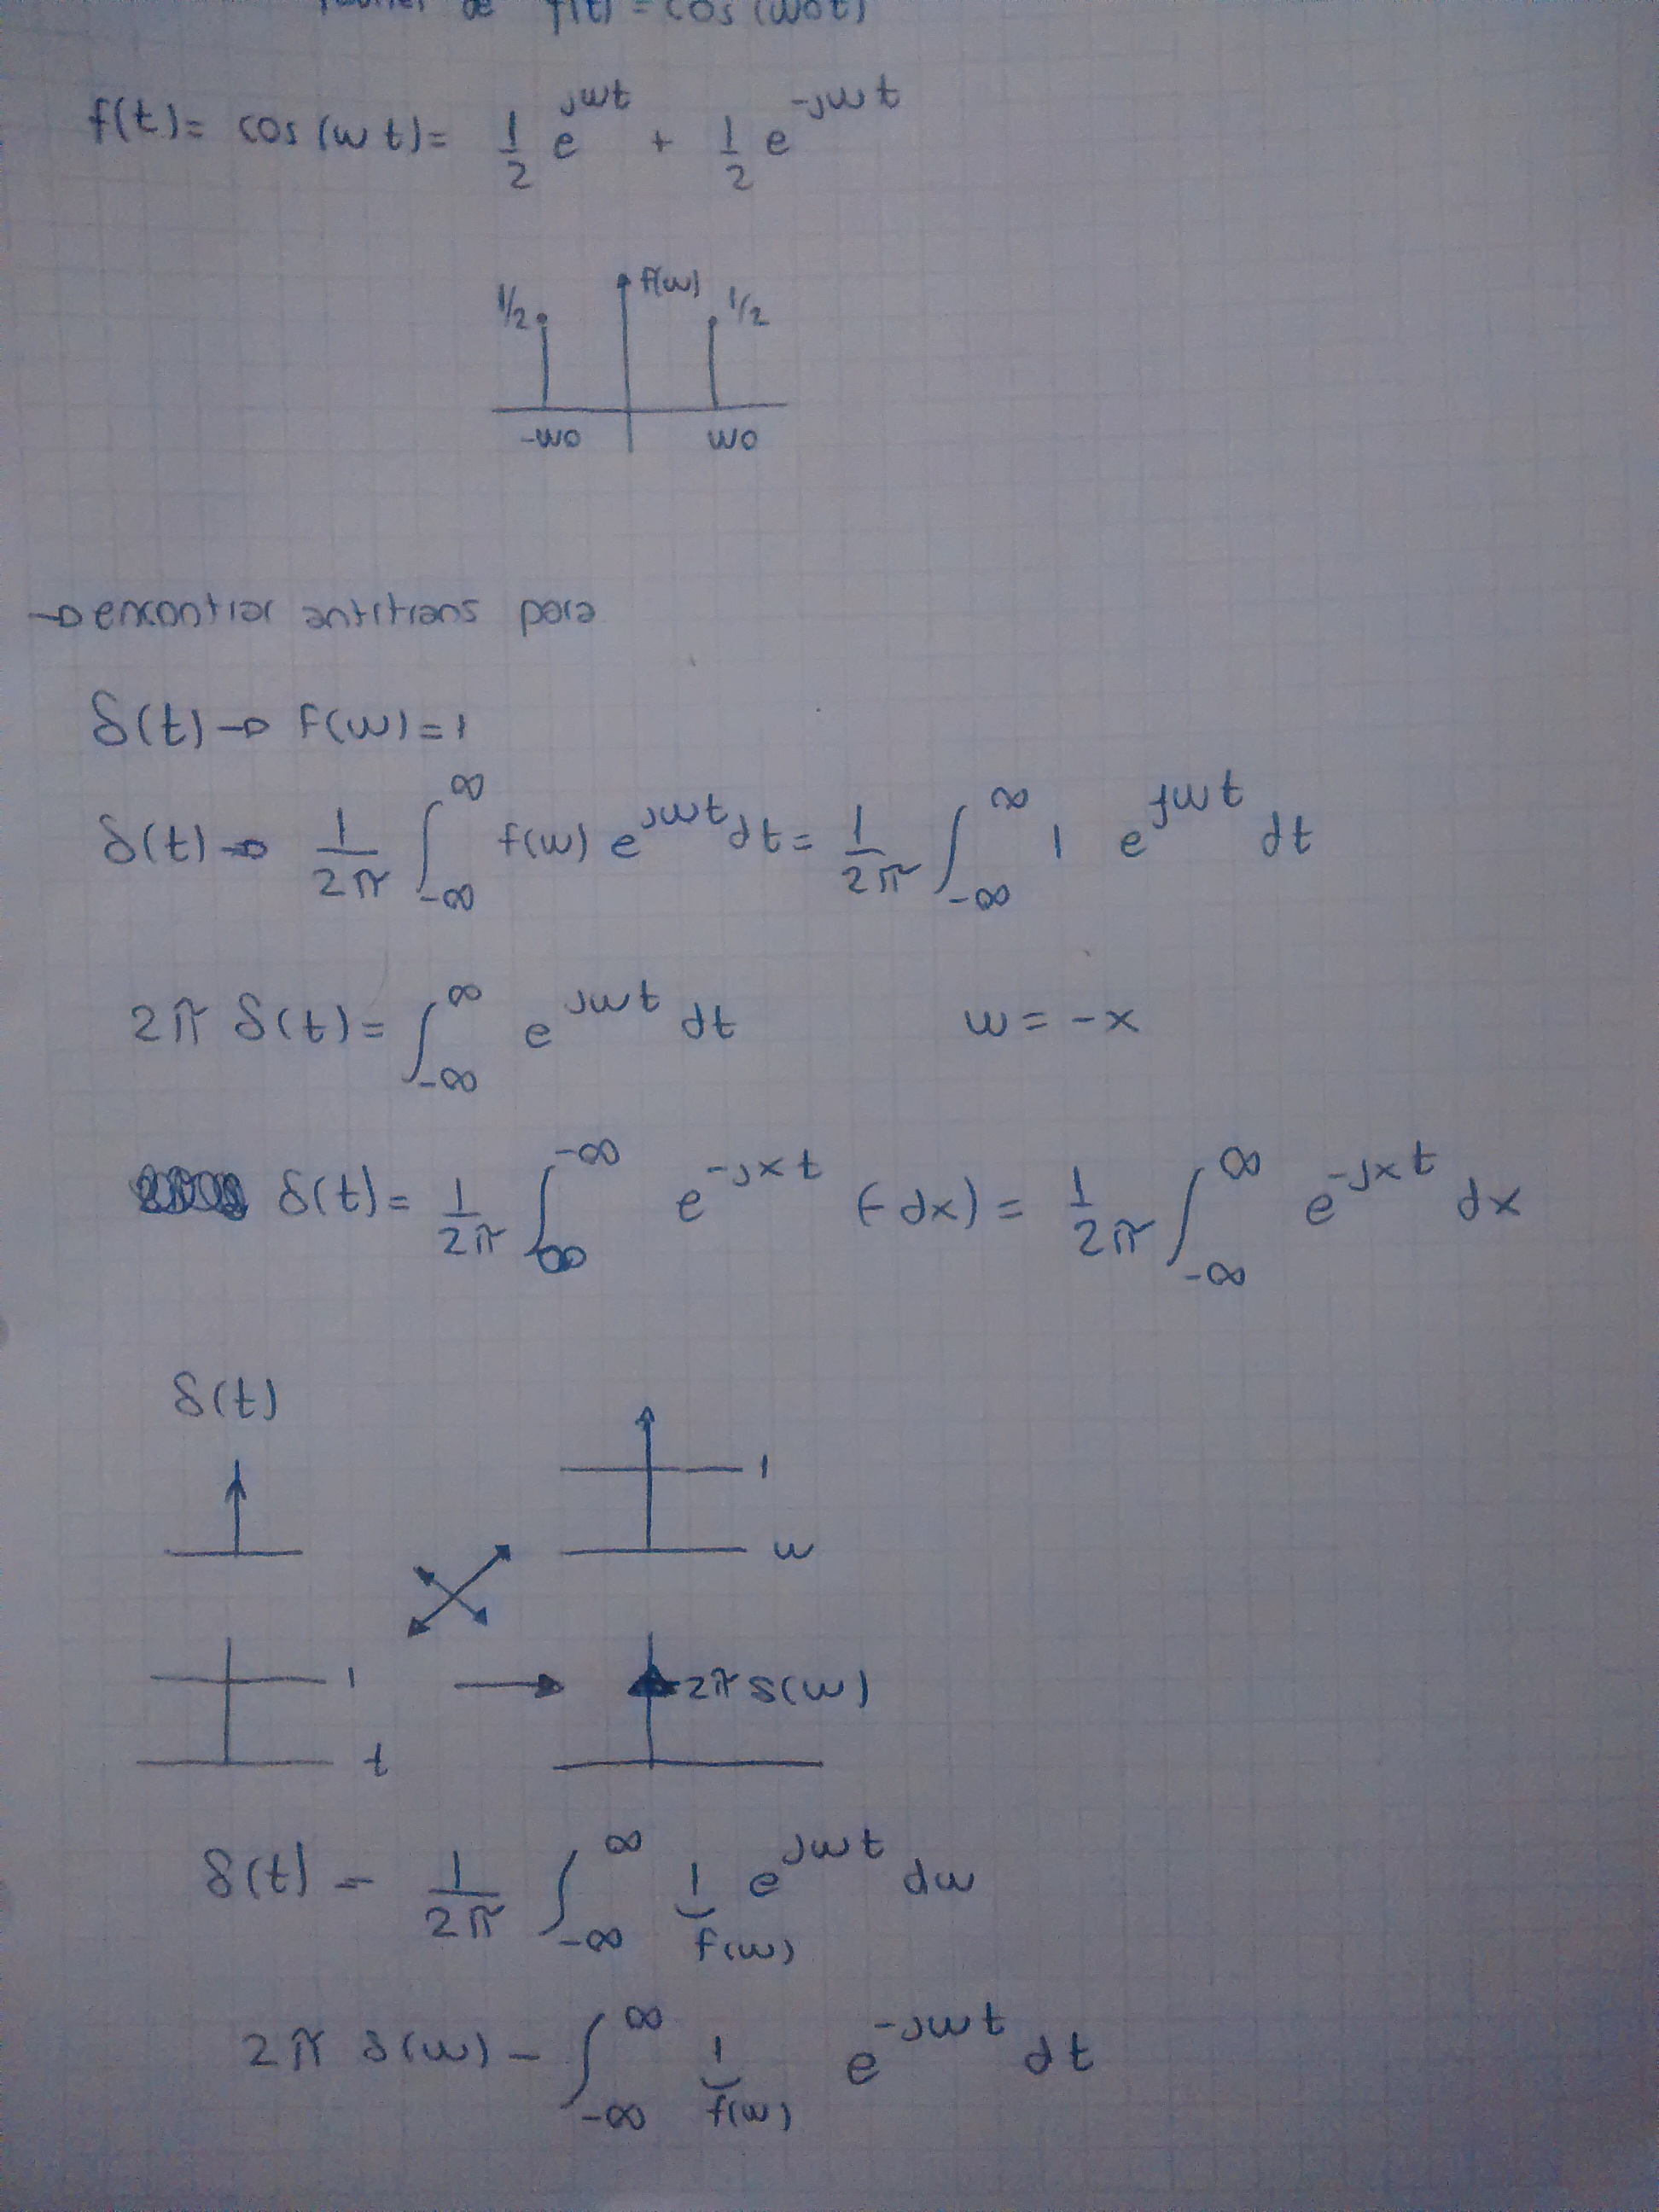 de f(t) = cos (wot)
f(t)= cos (w t)= 1/2 e^jwt + 1/2 e^-jwt
f(w)
1/2 1/2
-wo wo
→ encontrar antitrans para
δ(t) → F(w)=1
δ(t) → 1/2π ∫_-∞^∞ f(w) e^jwt dt = 1/2π ∫_-∞^∞ 1 e^jwt dt
2π δ(t)= ∫_-∞^∞ e^jwt dt w = -x
δ(t)= 1/2π ∫_∞^-∞ e^-jxt (-dx) = 1/2π ∫_-∞^∞ e^-jxt dx
δ(t)
1
w
1 2π δ(w)
t
δ(t) = 1/2π ∫_-∞^∞ 1 e^jwt dw
f(w)
2π δ(w) - ∫_-∞^∞ 1 e^-jwt dt
f(w)